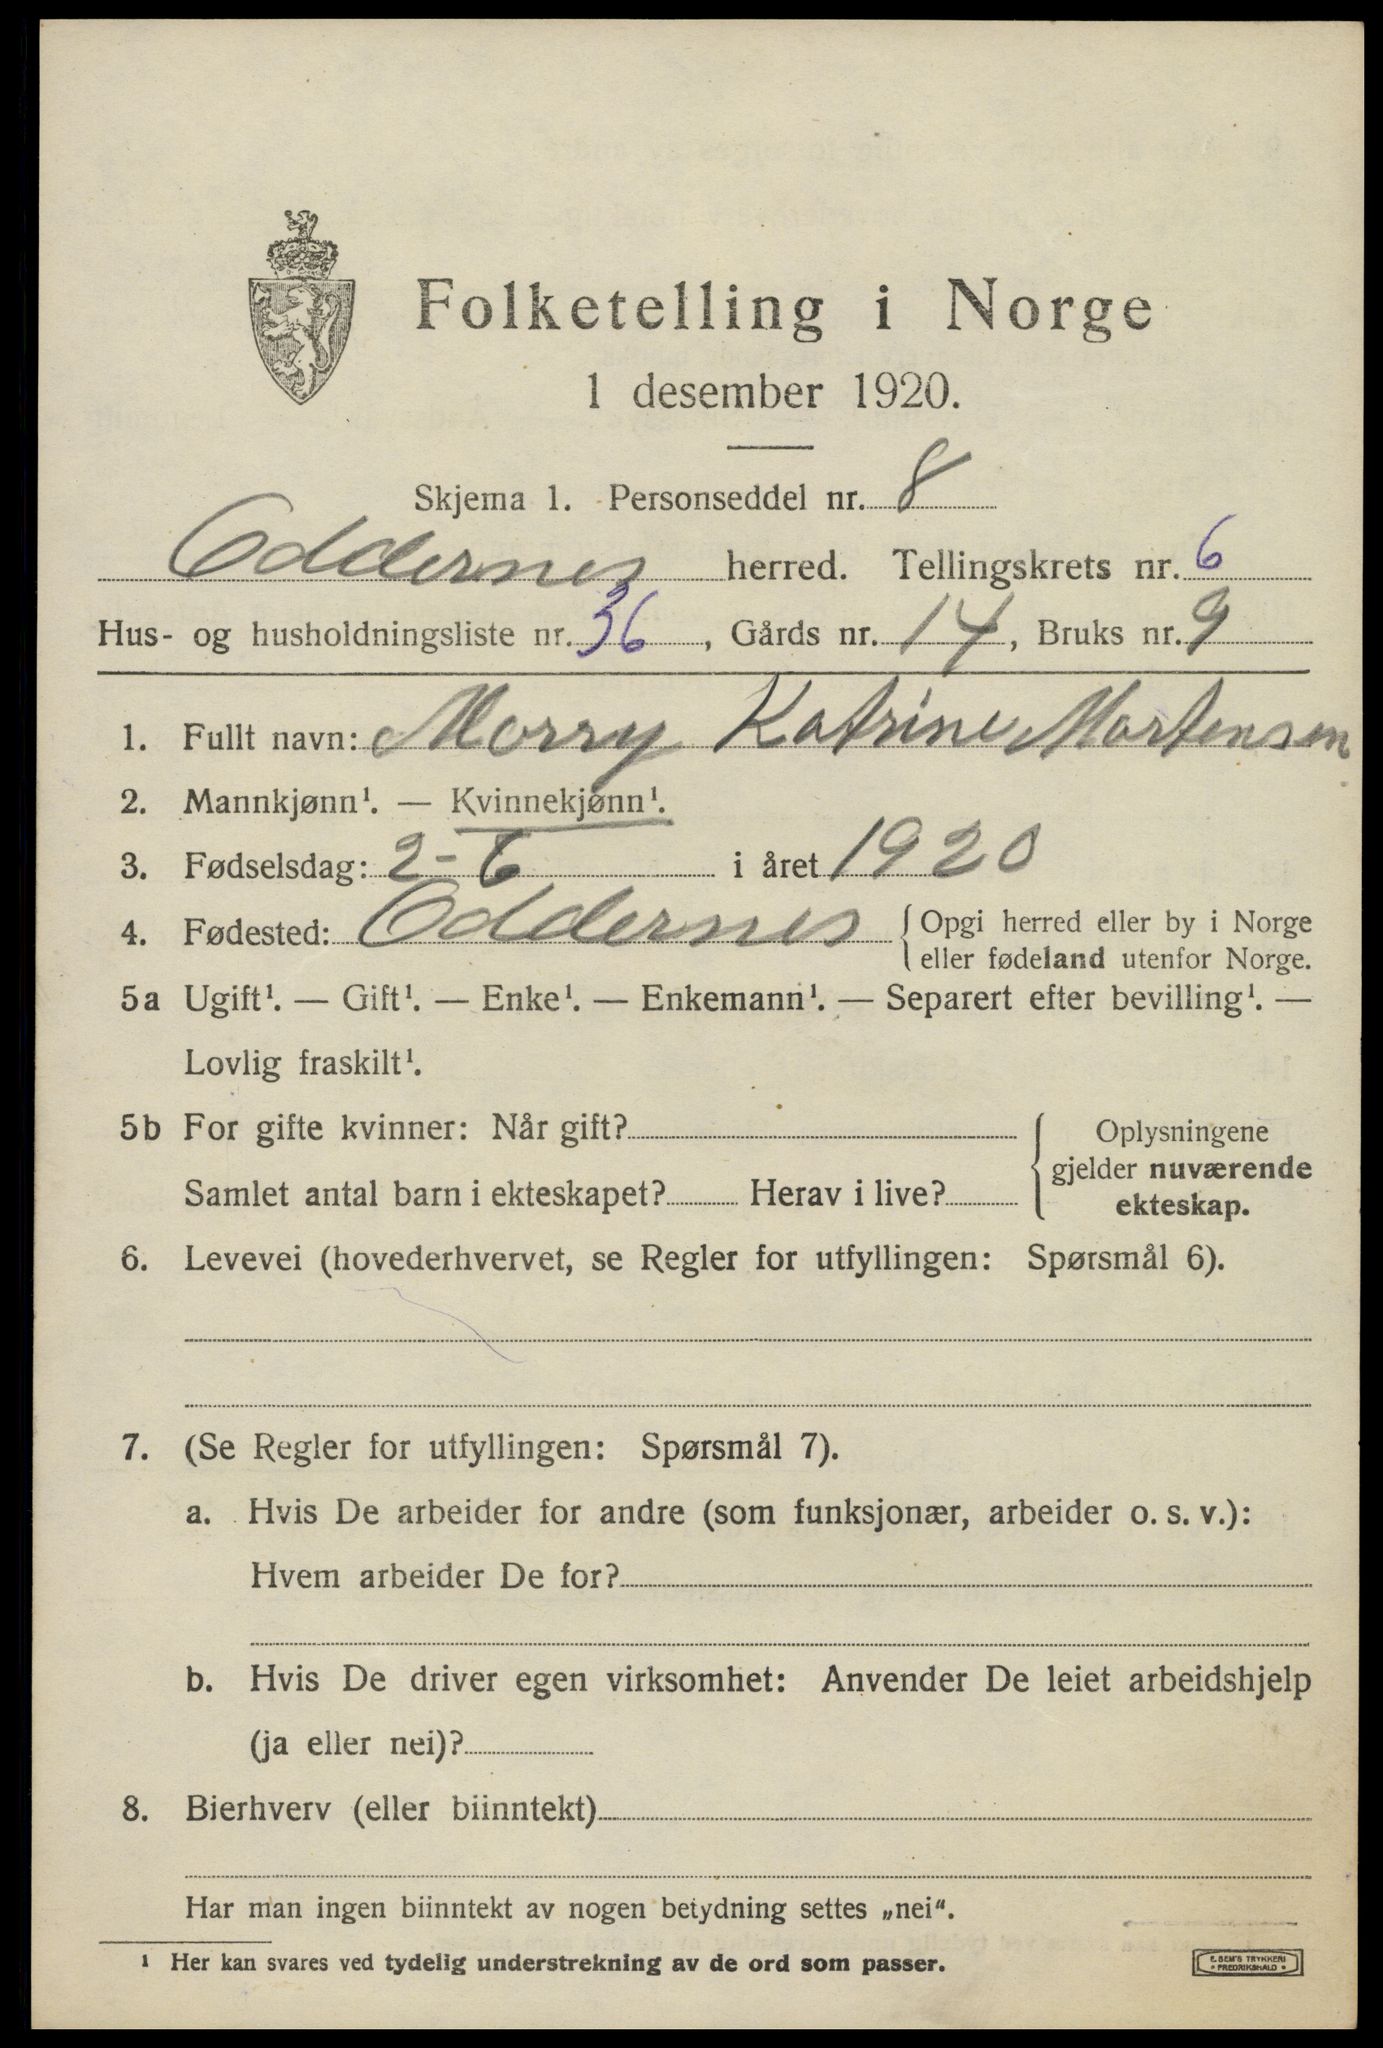 Folketelling i Norge
1 desember 1920.
Skjema 1. Personseddel nr. 8
Oddernes herred. Tellingskrets nr. 6
Hus- og husholdningsliste nr. 36, Gårds nr. 14, Bruks nr. 9
1. Fullt navn: Morry Katrine Mortensen
2. Mannkjønn¹. — Kvinnekjønn¹.
3. Fødselsdag: 2-6 i året 1920
4. Fødested: Oddernes { Opgi herred eller by i Norge
eller fødeland utenfor Norge.
5a Ugift¹. — Gift¹. — Enke¹. — Enkemann¹. — Separert efter bevilling¹. —
Lovlig fraskilt¹.
5b For gifte kvinner: Når gift?
Samlet antal barn i ekteskapet? Herav i live?
Oplysningene
gjelder nuværende
ekteskap.
6. Levevei (hovederhvervet, se Regler for utfyllingen: Spørsmål 6).
7. (Se Regler for utfyllingen: Spørsmål 7).
a. Hvis De arbeider for andre (som funksjonær, arbeider o. s. v.):
Hvem arbeider De for?
b. Hvis De driver egen virksomhet: Anvender De leiet arbeidshjelp
(ja eller nei)?
8. Bierhverv (eller biinntekt)
Har man ingen biinntekt av nogen betydning settes „nei“.
¹ Her kan svares ved tydelig understrekning av de ord som passer.
E. SEM'S TRYKKERI
• FREDRIKSHALD •